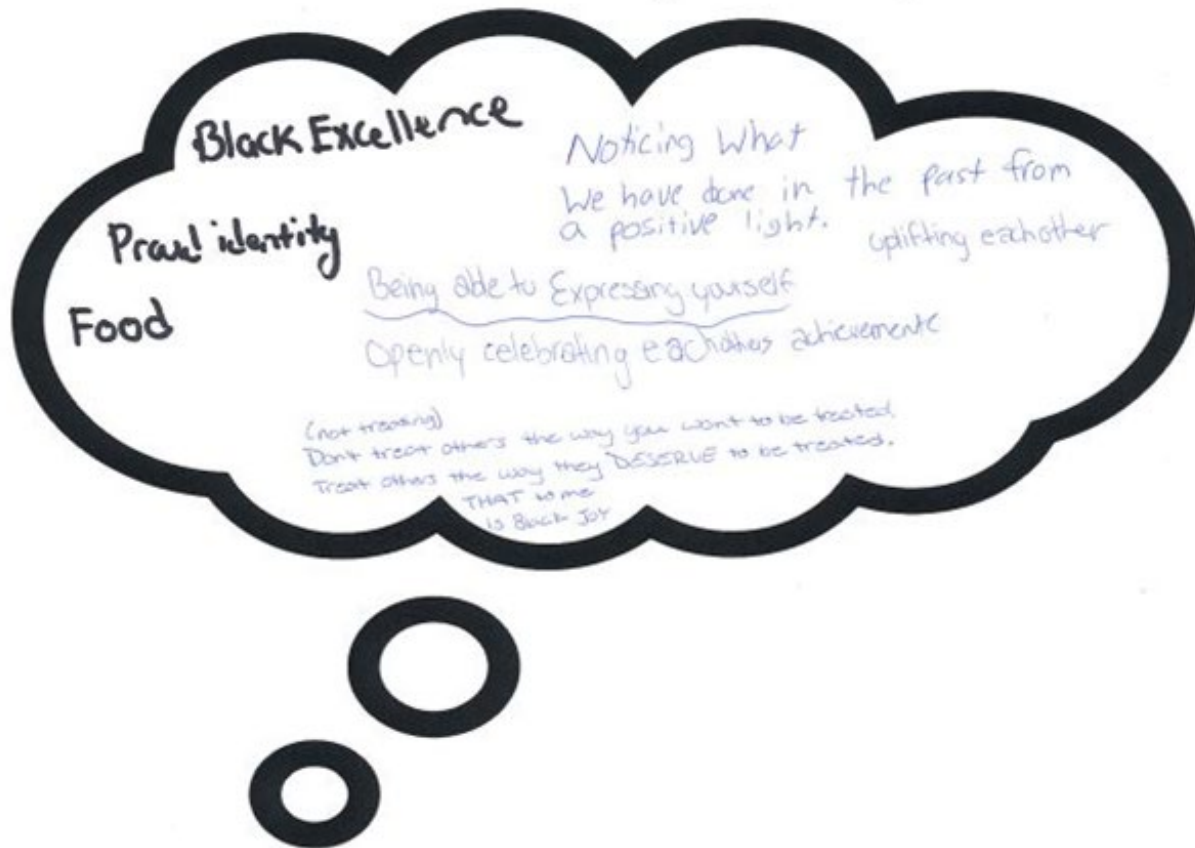 Black Excellence
Proud identity
Food
Noticing What
We have done in the past from
a positive light.
uplifting eachother
Being able to Expressing yourself
Openly celebrating eachothers achievements
(not treating)
Dont treat others the way you want to be treated.
Treat others the way they DESERVE to be treated.
THAT to me
is Black Joy